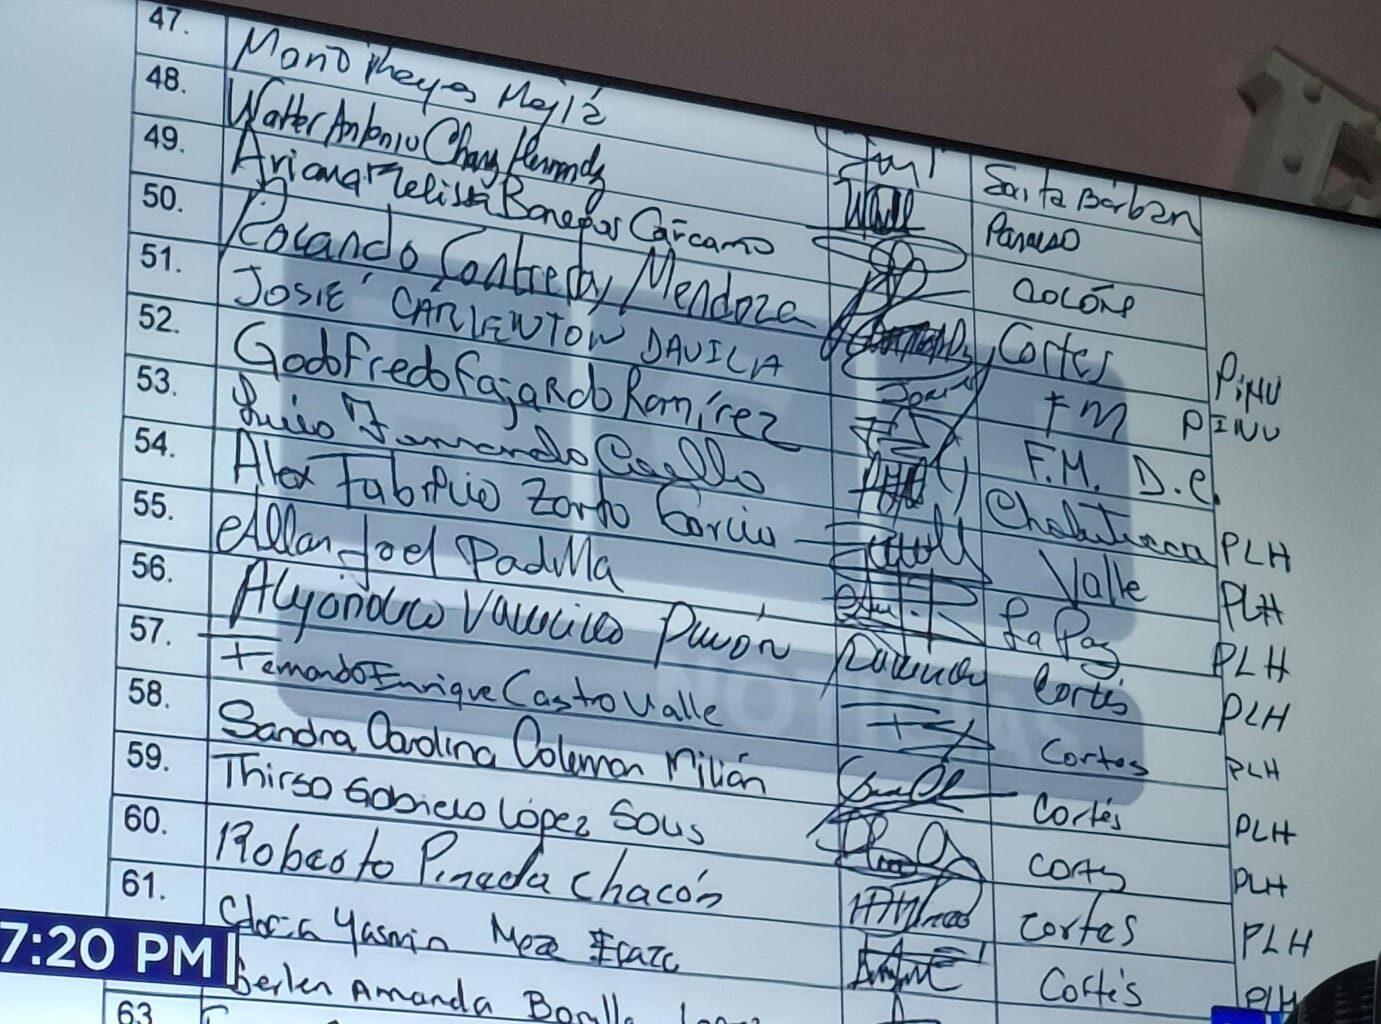 47. Reyes Mejía Santa Bárbara
48. Walter Antonio Chang Hernandz Paraiso
49. Ariana Melissa Banegas Cárcamo Colón
50. Rolando Contreras Mendoza Cortes PINU
51. JOSÉ DAVILA FM PINU
52. Godofredo Fajardo Ramírez F.M. D.C.
53. Luis Fernando Coello Choluteca PLH
54. Alex Fabricio Zorto Garcia Valle PLH
55. Allan Joel Padilla La Paz PLH
56. Alejandro Vallecillo Pavón Cortés PLH
57. Fernando Enrique Castro Valle Cortes PLH
58. Sandra Carolina Coleman Milián Cortés PLH
59. Thirso López Cortes PLH
60. Roberto Pineda Chacón Cortes PLH
61. Yasmin Meza Erazo Cortés PLH
7:20 PM
Amanda Bonilla
63